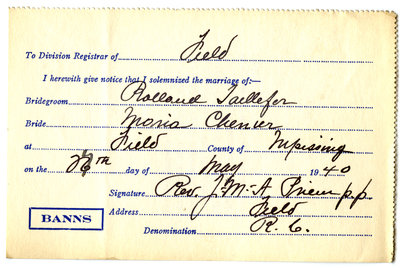 To Division Registrar of Field
I herewith give notice that I solemnized the marriage of:—
Bridegroom Rolland Taillefer
Bride Maria Chenier
at Field County of Nipissing
on the day of May 1940
Signature Rev. J. M. A. p.p.
BANNS
Address Field
Denomination R. C.